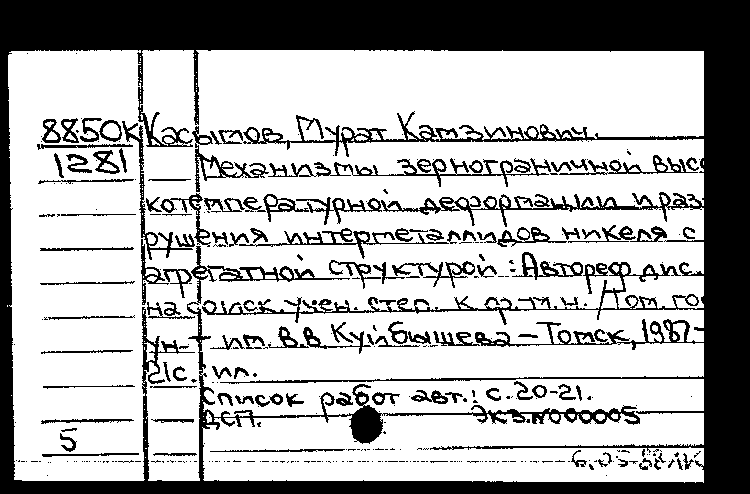 8850К Касымов, Мурат Камзинович.
1281 Механизмы зернограничной высо
котемпературной деформации и раз-
рушения интерметаллидов никеля с
агрегатной структурой : Автореф дис.
на соиск. учен. степ. к.ф.-м.н. / Том. гос
ун-т им. В.В. Куйбышева – Томск, 1987.-
21с. : ил.
Список работ авт.: с. 20-21.
ДСП. Экз. №000005
5